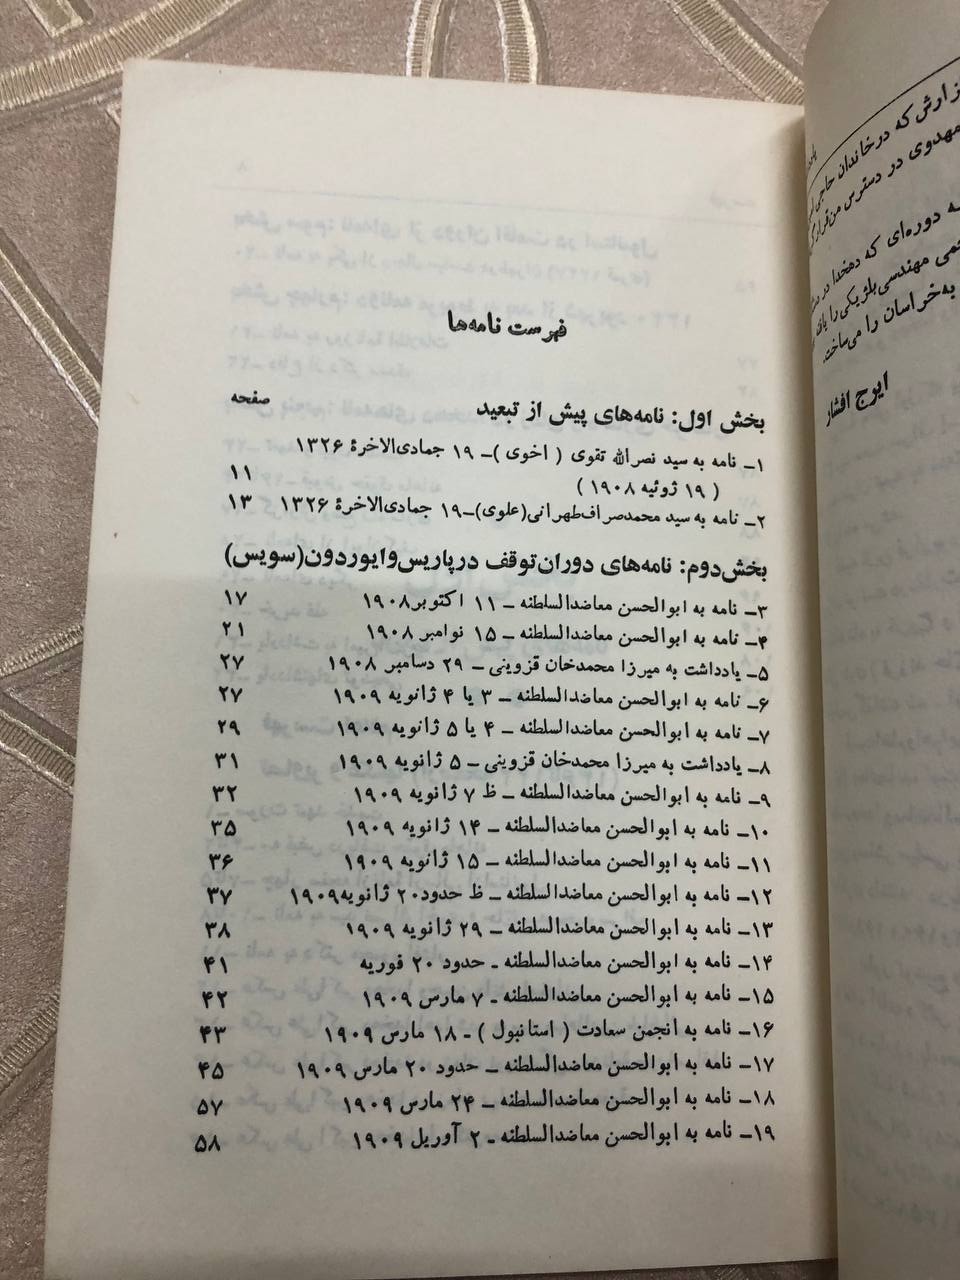 فهرست نامه‌ها
صفحه
بخش اول: نامه‌های پیش از تبعید
۱ـ نامه به سید نصرالله تقوی ( اخوی )ـ ۱۹ جمادی‌الاخرهٔ ۱۳۲۶
( ۱۹ ژوئیه ۱۹۰۸ ) ۱۱
۲ـ نامه به سید محمدصراف‌طهرانی(علوی)ـ۱۹ جمادی‌الاخرهٔ ۱۳۲۶ ۱۳
بخش‌دوم: نامه‌های دوران‌توقف درپاریس‌وایوردون(سویس)
۳ـ نامه به ابوالحسن معاضدالسلطنه ـ ۱۱ اکتوبر۱۹۰۸ ۱۷
۴ـ نامه به ابوالحسن معاضدالسلطنه ـ ۱۵ نوامبر ۱۹۰۸ ۲۱
۵ـ یادداشت به میرزا محمدخان قزوینی ـ ۲۹ دسامبر ۱۹۰۸ ۲۷
۶ـ نامه به ابوالحسن معاضدالسلطنه ـ ۳ یا ۴ ژانویه ۱۹۰۹ ۲۷
۷ـ نامه به ابوالحسن معاضدالسلطنه ـ ۴ یا ۵ ژانویه ۱۹۰۹ ۲۹
۸ـ یادداشت به میرزا محمدخان قزوینی ـ ۵ ژانویه ۱۹۰۹ ۳۱
۹ـ نامه به ابوالحسن معاضدالسلطنه ـ ظ ۷ ژانویه ۱۹۰۹ ۳۲
۱۰ـ نامه به ابوالحسن معاضدالسلطنه ـ ۱۴ ژانویه ۱۹۰۹ ۳۵
۱۱ـ نامه به ابوالحسن معاضدالسلطنه ـ ۱۵ ژانویه ۱۹۰۹ ۳۶
۱۲ـ نامه به ابوالحسن معاضدالسلطنه ـ ظ حدود۲۰ ژانویه۱۹۰۹ ۳۷
۱۳ـ نامه به ابوالحسن معاضدالسلطنه ـ ۲۹ ژانویه ۱۹۰۹ ۳۸
۱۴ـ نامه به ابوالحسن معاضدالسلطنه ـ حدود ۲۰ فوریه ۴۱
۱۵ـ نامه به ابوالحسن معاضدالسلطنه ـ ۷ مارس ۱۹۰۹ ۴۲
۱۶ـ نامه به انجمن سعادت ( استانبول ) ـ ۱۸ مارس ۱۹۰۹ ۴۳
۱۷ـ نامه به ابوالحسن معاضدالسلطنه ـ حدود ۲۰ مارس ۱۹۰۹ ۴۵
۱۸ـ نامه به ابوالحسن معاضدالسلطنه ـ ۲۴ مارس ۱۹۰۹ ۵۷
۱۹ـ نامه به ابوالحسن معاضدالسلطنه ـ ۲ آوریل ۱۹۰۹ ۵۸
که درخاندان حاجی
مهدوی در دسترس من‌قرار
دوره‌ای که دهخدا در
مهندسی‌بلژیکی‌را
به‌خراسان را می‌ساخت.
ایرج افشار